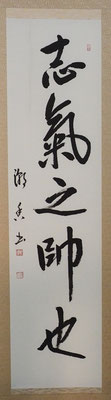 志氣之帥也